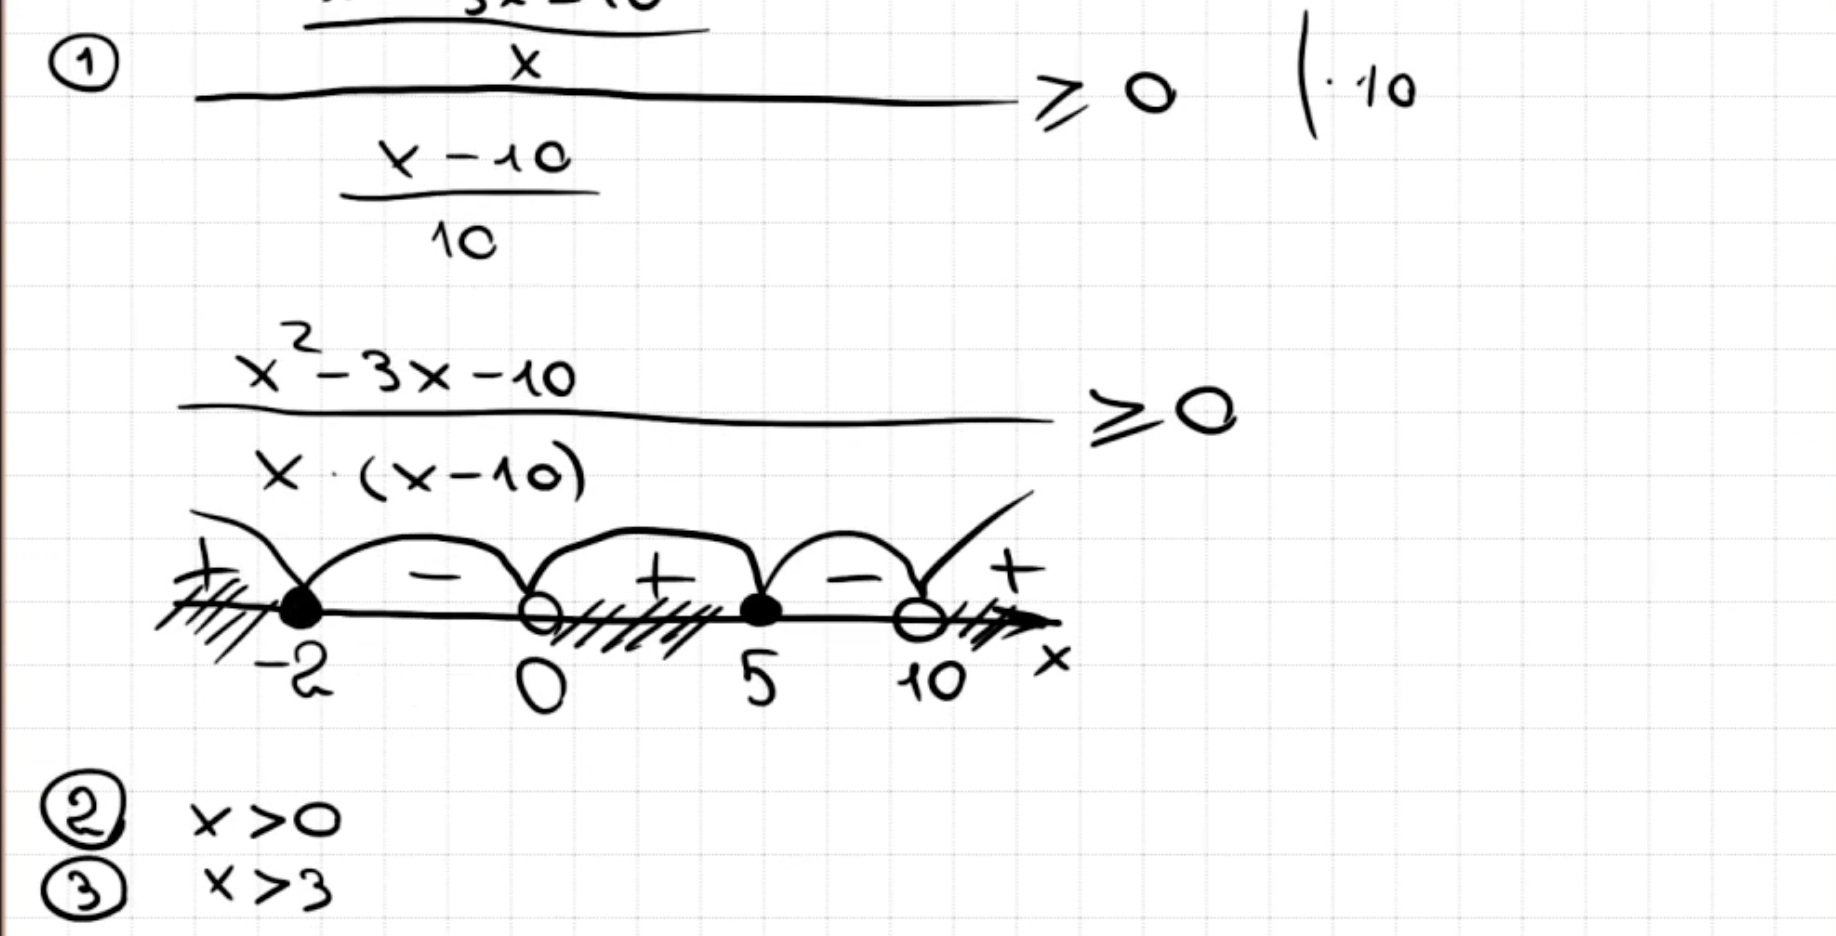 ① x ≥ 0 | · 10
x - 10
10
x² - 3x - 10 ≥ 0
x · (x - 10)
+ - + - +
-2 0 5 10 x
② x > 0
③ x > 3